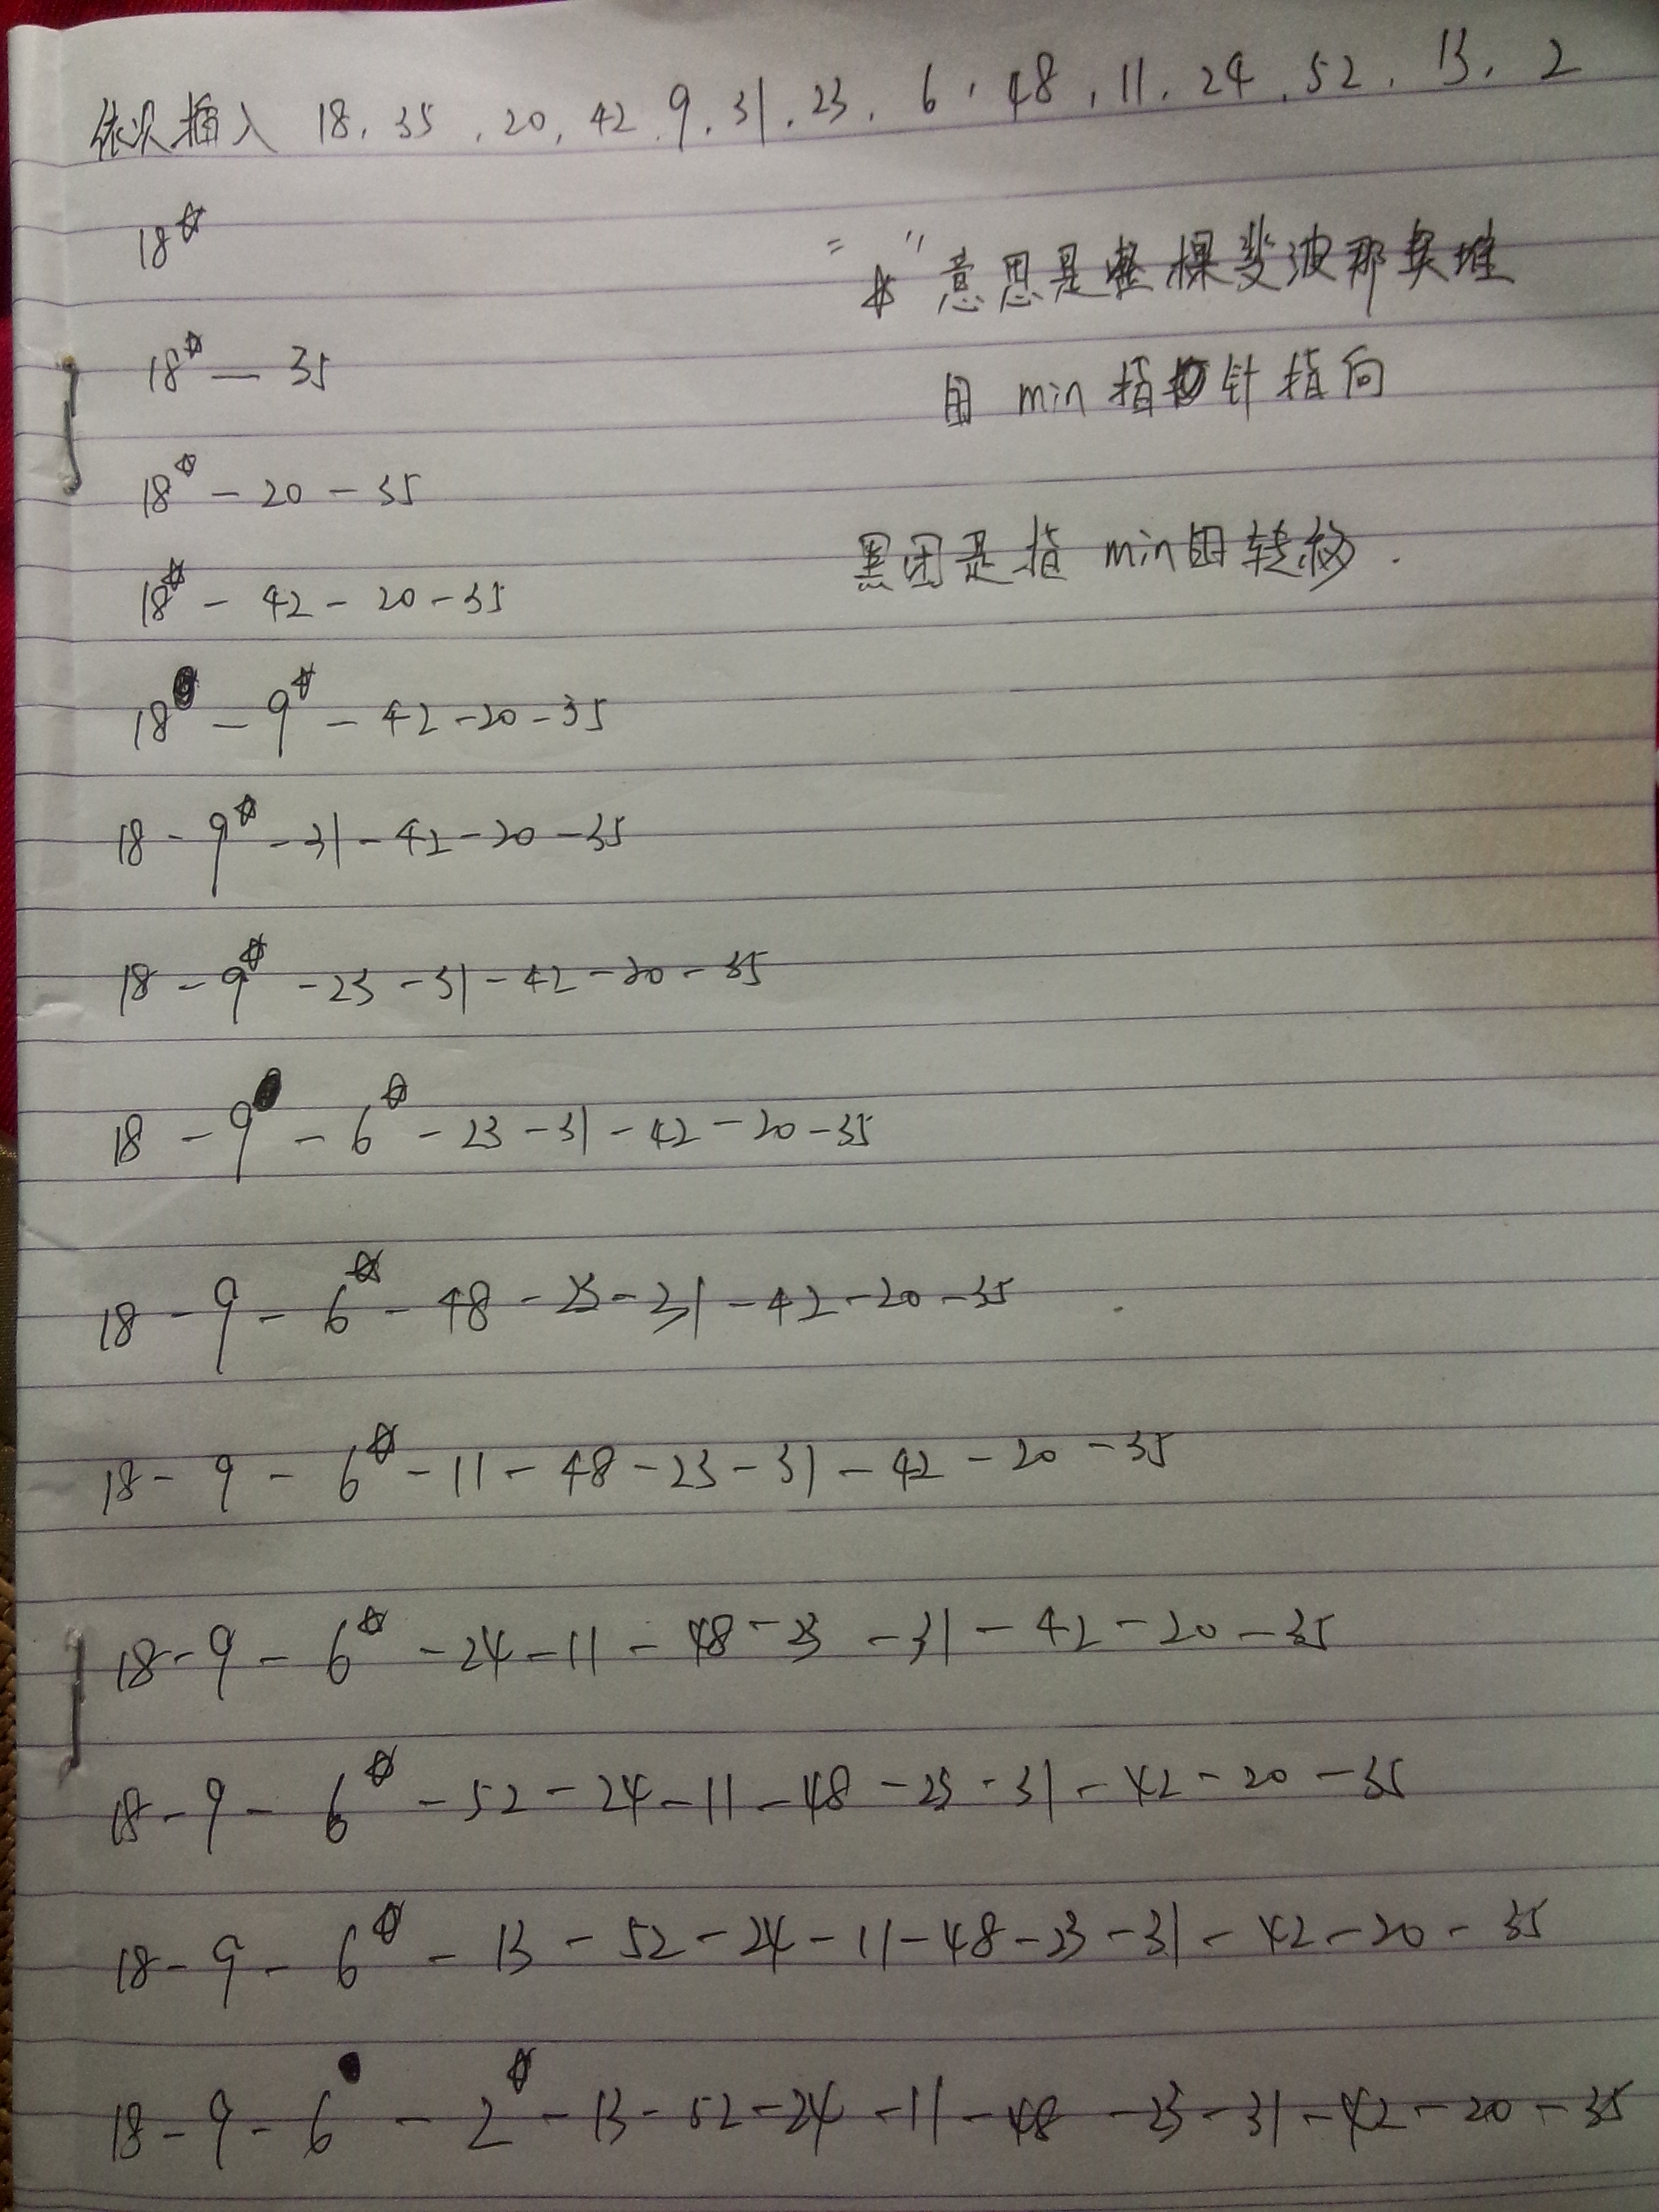 依次插入 18, 35, 20, 42, 9, 31, 23, 6, 48, 11, 24, 52, 13, 2
18☆
"☆"意思是整棵斐波那契堆
18☆ — 35
由 min 指针指向
18☆ - 20 - 35
黑团是指 min的转移.
18☆ - 42 - 20 - 35
18● - 9☆ - 42 - 20 - 35
18 - 9☆ - 31 - 42 - 20 - 35
18 - 9☆ - 23 - 31 - 42 - 20 - 35
18 - 9● - 6☆ - 23 - 31 - 42 - 20 - 35
18 - 9 - 6☆ - 48 - 23 - 31 - 42 - 20 - 35
18 - 9 - 6☆ - 11 - 48 - 23 - 31 - 42 - 20 - 35
18 - 9 - 6☆ - 24 - 11 - 48 - 23 - 31 - 42 - 20 - 35
18 - 9 - 6☆ - 52 - 24 - 11 - 48 - 23 - 31 - 42 - 20 - 35
18 - 9 - 6☆ - 13 - 52 - 24 - 11 - 48 - 23 - 31 - 42 - 20 - 35
18 - 9 - 6● - 2☆ - 13 - 52 - 24 - 11 - 48 - 23 - 31 - 42 - 20 - 35